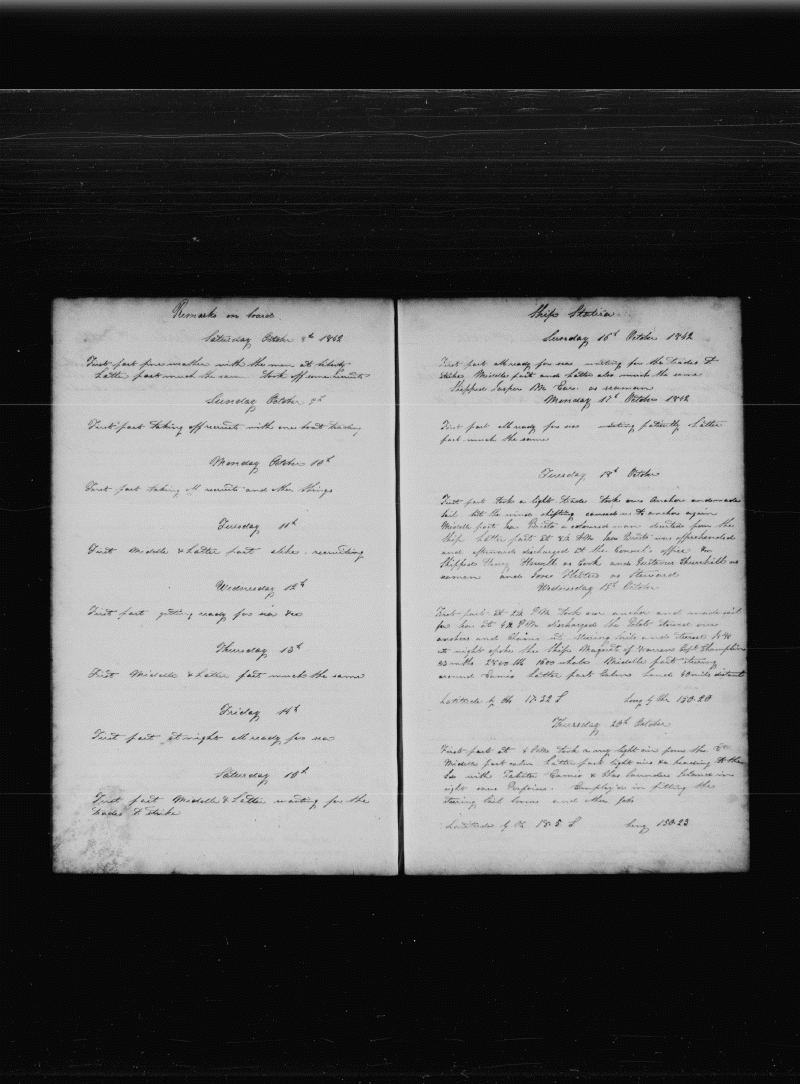 Remarks on board
Saturday October 8th 1842
First part fine weather with the men at liberty
Latter part much the same Took off some recruits
Sunday October 9th
First part taking off recruits with one boat trading
Monday October 10th
First part taking off recruits and other things
Tuesday 11th
First Middle & Latter part alike recruiting
Wednesday 12th
First part getting ready for sea &c
Thursday 13th
First Middle & Latter part much the same
Friday 14th
First part at night all ready for sea
Saturday 15th
First part Middle & Latter waiting for the
trades to strike
Ship Statira
Sunday 16th October 1842
First part all ready for sea waiting for the trades to
strike Middle part and Latter also much the same
Shipped Jasper as seaman
Monday 17th October 1842
First part all ready for sea waiting patiently Latter
part much the same
Tuesday 18th October
First part took a light trade took our anchor and made
sail but the wind shifting caused us to anchor again
Middle part a coloured man deserted from the
ship Latter part at PM was apprehended
and afterwards discharged at the Consul's office
Shipped Henry Howell as Cook and Gustavus Churchill as
seaman and as Steward
Wednesday 19th October
First part at PM took our anchor and made sail
for sea at PM discharged the Pilot stowed our
anchors and chains
at night spoke the Ship Magnet of Warren Capt Champlin
months 2800 bbl 1600 whale Middle part steering
around Eimio Latter part calm Land miles distant
Latitude by Ob 17.32 S Long by Chr 150.20
Thursday 20th October
First part at PM took a light air from the
Middle part calm Latter part light airs heading to the
with Tahiti Eimio & Sir Saunders Island in
sight some Porpoises Employed in fitting the
steering sail booms and other jobs
Latitude by Ob 18.5 S Long 150.23